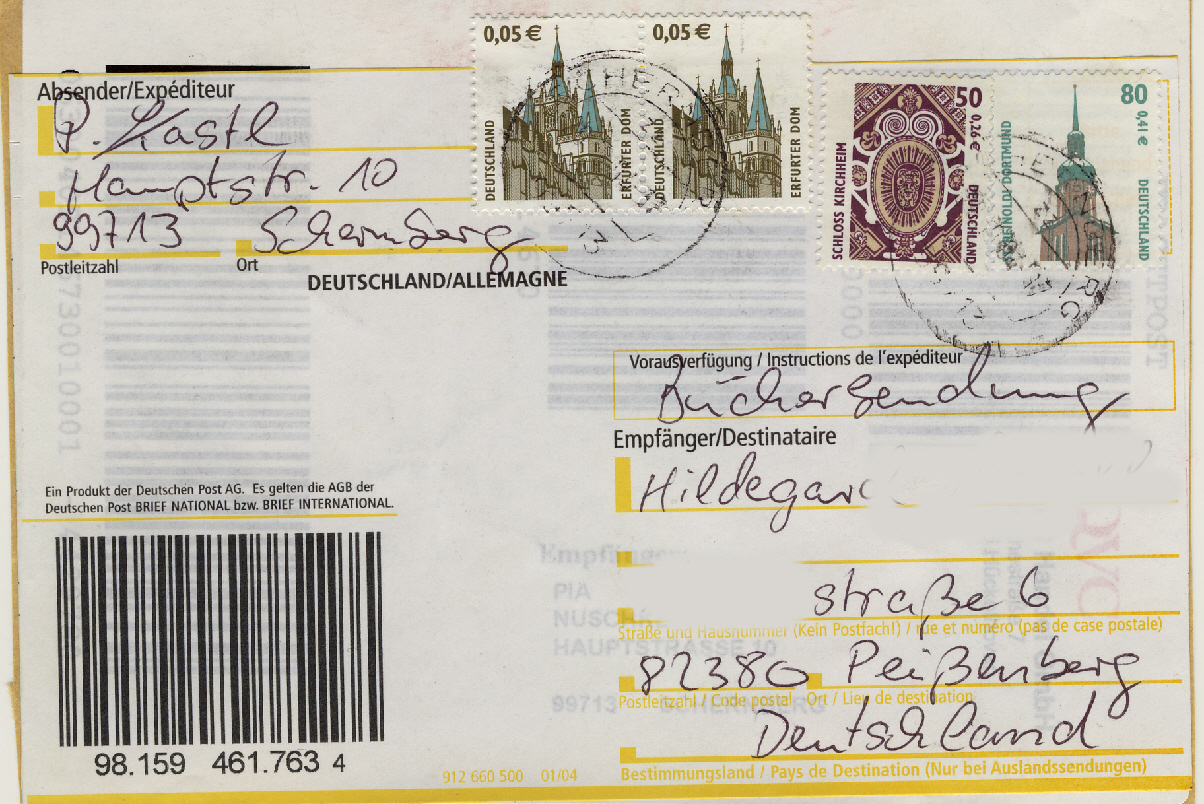 0,05 €
DEUTSCHLAND
ERFURTER DOM
0,05 €
DEUTSCHLAND
ERFURTER DOM
50
0,26 €
SCHLOSS KIRCHHEIM
DEUTSCHLAND
80
0,41 €
ST. REINOLDI DORTMUND
DEUTSCHLAND
Absender/Expéditeur
P. Kastl
Hauptstr. 10
99713 Schernberg
Postleitzahl Ort
DEUTSCHLAND/ALLEMAGNE
Vorausverfügung / Instructions de l'expéditeur
Büchersendung
Empfänger/Destinataire
Hildegard
straße 6
Straße und Hausnummer (Kein Postfach!) / rue et numéro (pas de case postale)
82380 Peißenberg
Postleitzahl / Code postal Ort / Lieu de destination
Deutschland
Bestimmungsland / Pays de Destination (Nur bei Auslandssendungen)
Ein Produkt der Deutschen Post AG. Es gelten die AGB der
Deutschen Post BRIEF NATIONAL bzw. BRIEF INTERNATIONAL.
98.159 461.763 4
912 660 500 01/04
PIA
HAUPTSTRASSE 10
99713 SCHERNBERG